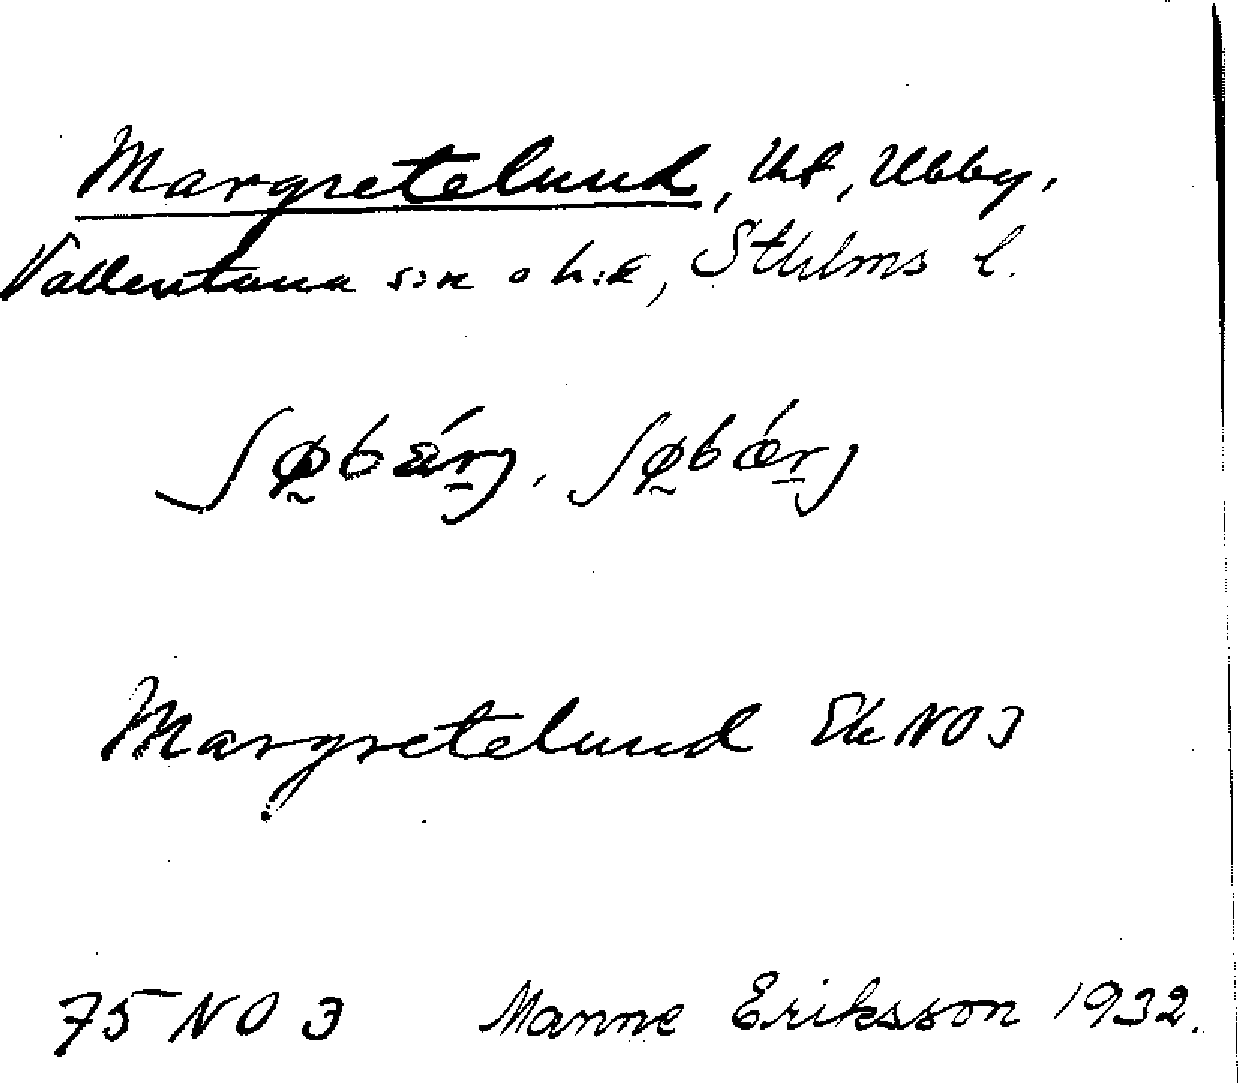 Margretelund, Uht, Ubby,
Vallentuna sn o h:d, Sthlms l.
ʃø̰bǽrj, ʃø̰bǿrj
Margretelund Ek NO 3
75 NO 3 Manne Eriksson 1932.